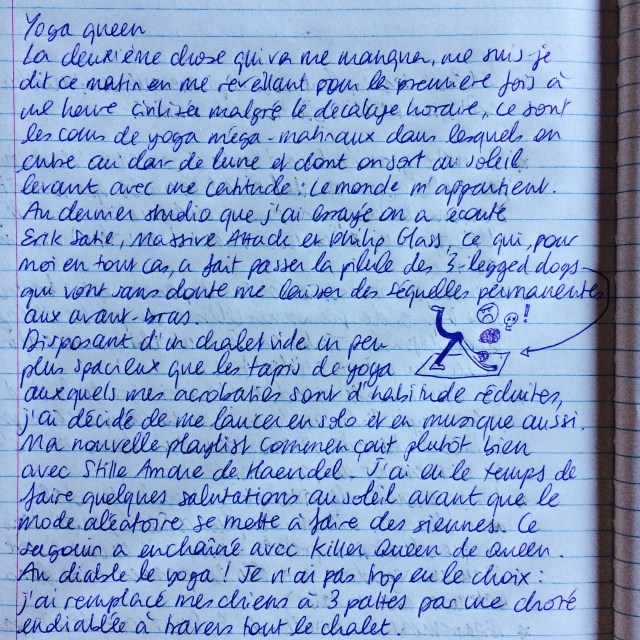 Yoga queen
La deuxième chose qui va me manquer, me suis-je
dit ce matin en me réveillant pour la première fois à
une heure civilisée malgré le décalage horaire, ce sont
les cours de yoga méga-matinaux dans lesquels on
entre au clair de lune et dont on sort au soleil
levant avec une certitude : le monde m'appartient.
Au dernier studio que j'ai essayé on a écouté
Erik Satie, Massive Attack et Philip Glass, ce qui, pour
moi en tout cas, a fait passer la pilule des 3-legged dogs
qui vont sans doute me laisser des séquelles permanentes
aux avant-bras.
!
Disposant d'un chalet vide un peu
plus spacieux que les tapis de yoga
auxquels mes acrobaties sont d'habitude réduites,
j'ai décidé de me lancer en solo et en musique aussi.
Ma nouvelle playlist commençait plutôt bien
avec Stille Amare de Haendel. J'ai eu le temps de
faire quelques salutations au soleil avant que le
mode aléatoire se mette à faire des siennes. Ce
sagouin a enchaîné avec Killer Queen de Queen.
Au diable le yoga ! Je n'ai pas trop eu le choix :
j'ai remplacé mes chiens à 3 pattes par une choré
endiablée à travers tout le chalet.